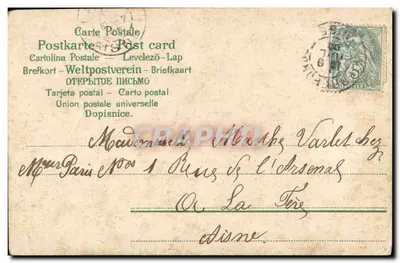 Carte Postale
Postkarte - Post card
Cartolina Postale - Levelező-Lap
Brefkort - Weltpostverein - Briefkaart
ОТКРЫТОЕ ПИСЬМО
Tarjeta postal - Carto postal
Union postale universelle
Dopisnice.
Mademoiselle Marthe Varlet chez
Paris Nos 1 Rue de l'Arsenal
A La Fère
Aisne